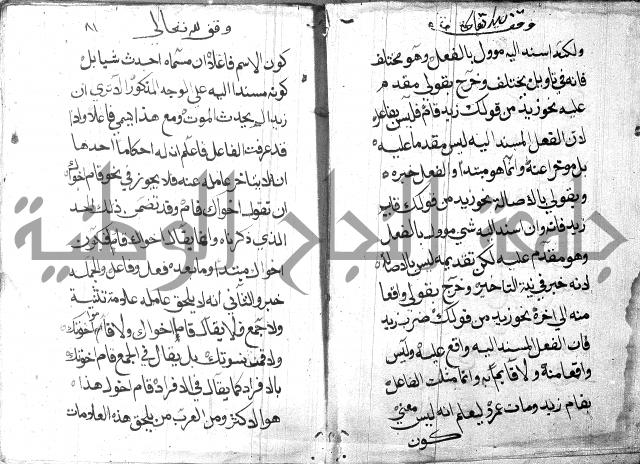 وقف لله تعالى
ولكنه اسند اليه موول بالفعل وهو مختلف
فانه في تاويل يختلف وخرج بقولي مقدم
عليه نحو زيد من قولك زيد قام فليس بفاعل
لان الفعل المسند اليه ليس مقدما عليه
بل موخر عنه وانما هو مبتدا والفعل خبره
وبقولي بالاصالة نحو زيد من قولك قايم
زيد فانه وان اسند اليه شي موول بالفعل
وهو مقدم عليه لكن تقديمه ليس بالاصالة
لانه خبر في نية التاخير وخرج بقولي واقعا
منه الى اخره نحو زيد من قولك ضرب زيد
فان الفعل المسند اليه واقع عليه وليس
واقعا منه ولا قايما به وانما مثلت الفاعل
بقام زيد ومات عمرو ليعلم انه ليس معنى
كون
وقف لله تعالى
٨١
كون الاسم فاعلا ان مسماه احدث شيا بل
كونه مسندا اليه على الوجه المذكور الا ترى ان
زيدا لم يحدث الموت ومع هذا يسمى فاعلا واذا
قد عرفت الفاعل فاعلم ان له احكاما احدها
ان لا يتاخر عامله عنه فلا يجوز في نحو قام اخواك
ان تقول اخواك قام وقد تضمن ذلك الحد
الذي ذكرناه وانما يقال اخواك قاما فيكون
اخواك مبتدا وما بعده فعل وفاعل والجملة
خبر والثاني انه لا يلحق عامله علامة تثنية
ولا جمع فلا يقال قاما اخواك ولا قاموا اخوتك
ولا قمن نسوتك بل يقال في الجمع قام اخوتك
بالافراد كما يقال في الافراد قام اخوك هذا
هو الاكثر ومن العرب من يلحق هذه العلامات
جامعة النجاح الوطنية